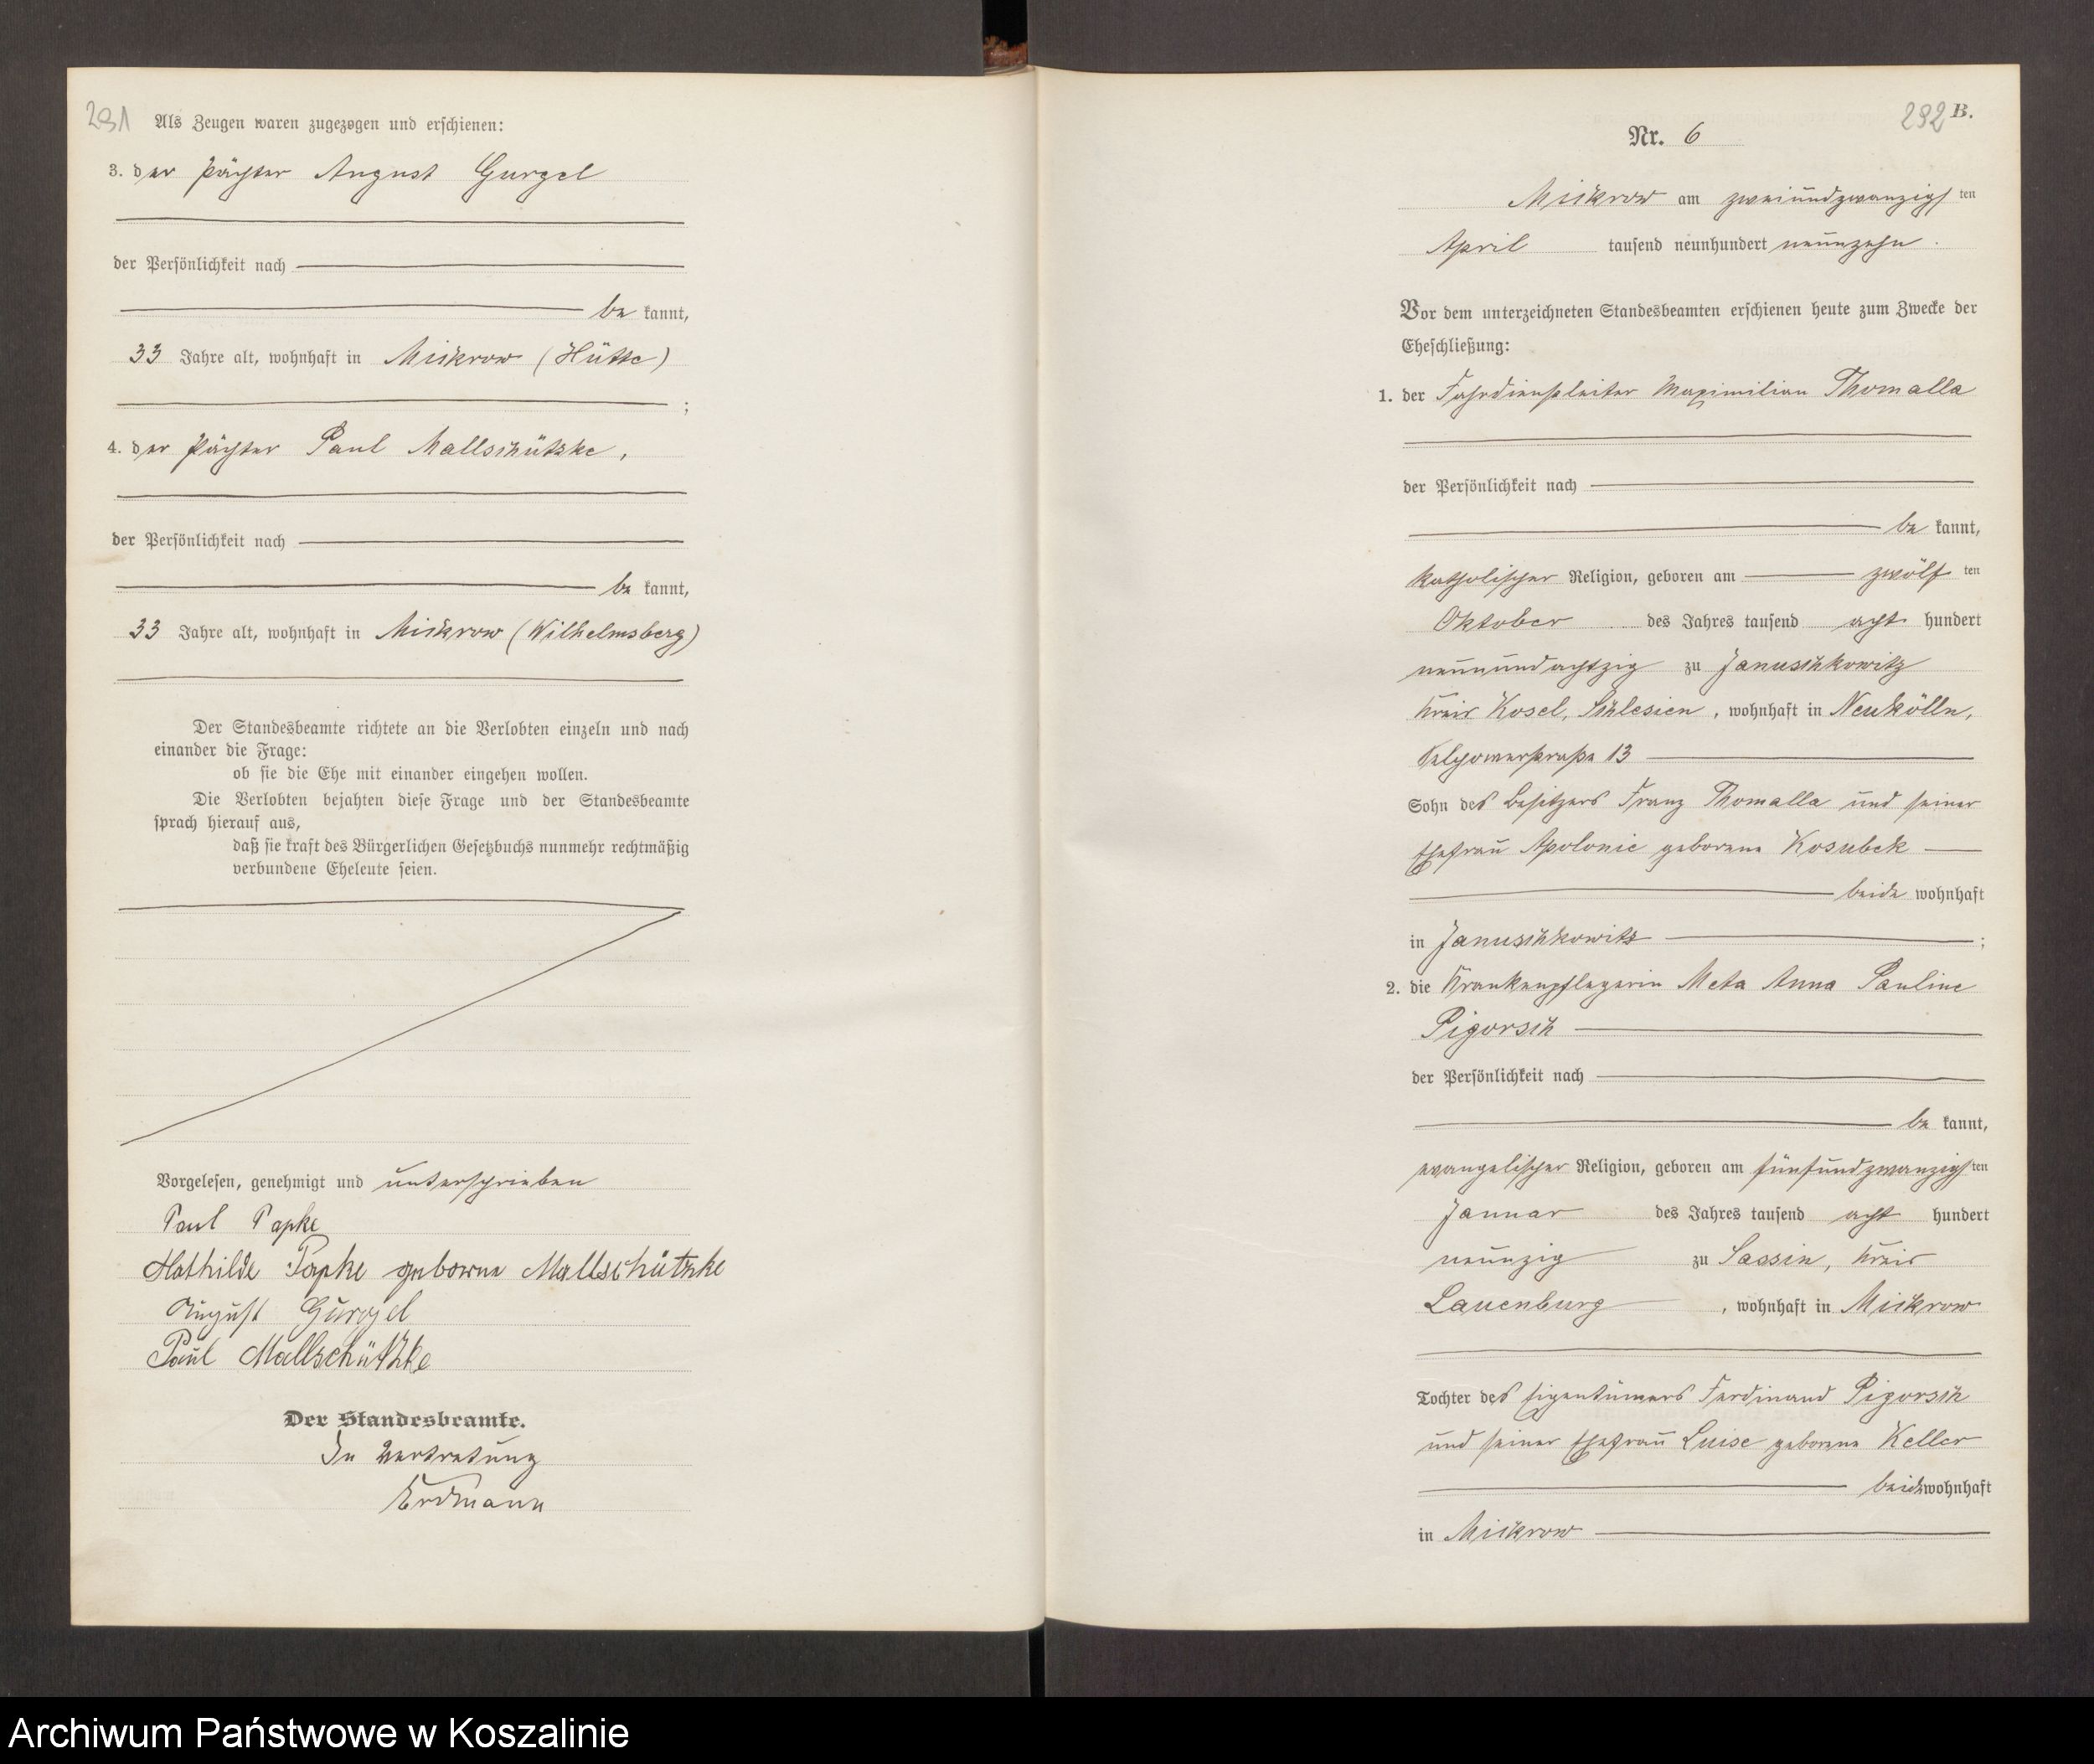 291
Als Zeugen waren zugezogen und erschienen:
3. der Pächter August Gurgel
der Persönlichkeit nach
be kannt,
33 Jahre alt, wohnhaft in Mickrow (Hütte)
;
4. der Pächter Paul Mallschützke,
der Persönlichkeit nach
be kannt,
33 Jahre alt, wohnhaft in Mickrow (Wilhelmsberg)
Der Standesbeamte richtete an die Verlobten einzeln und nach
einander die Frage:
ob sie die Ehe mit einander eingehen wollen.
Die Verlobten bejahten diese Frage und der Standesbeamte
sprach hierauf aus,
daß sie kraft des Bürgerlichen Gesetzbuchs nunmehr rechtmäßig
verbundene Eheleute seien.
Vorgelesen, genehmigt und unterschrieben
Paul Papke
Mathilde Papke geborne Mallschützke
August Gurgel
Paul Mallschützke
Der Standesbeamte.
In Vertretung
Erdmann
292 B.
Nr. 6
Mickrow am zweiundzwanzigs ten
April tausend neunhundert neunzehn.
Vor dem unterzeichneten Standesbeamten erschienen heute zum Zwecke der
Eheschließung:
1. der Fahrdienstleiter Maximilian Thomalla
der Persönlichkeit nach
be kannt,
katholischer Religion, geboren am zwölf ten
Oktober des Jahres tausend acht hundert
neunundachtzig zu Januschkowitz
Kreis Kosel, Schlesien, wohnhaft in Neukölln,
straße 13
Sohn des Besitzers Franz Thomalla und seiner
Ehefrau Apolonie geborene Kosubek
beide wohnhaft
in Januschkowitz ;
2. die Krankenpflegerin Meta Anna Pauline
Pigorsch
der Persönlichkeit nach
be kannt,
evangelischer Religion, geboren am fünfundzwanzigs ten
Januar des Jahres tausend acht hundert
neunzig zu Sassin, Kreis
Lauenburg, wohnhaft in Mickrow
Tochter des Eigentümers Ferdinand Pigorsch
und seiner Ehefrau Luise geborene Keller
beide wohnhaft
in Mickrow
Archiwum Państwowe w Koszalinie